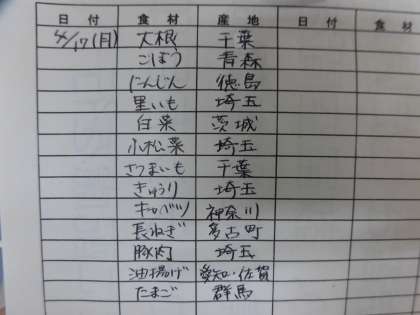 日付 食材 産地 日付 食材
4/17(月) 大根 千葉
ごぼう 青森
にんじん 徳島
里いも 埼玉
白菜 茨城
小松菜 埼玉
さつまいも 千葉
きゅうり 埼玉
キャベツ 神奈川
長ねぎ 多古町
豚肉 埼玉
油揚げ 愛知・佐賀
たまご 群馬